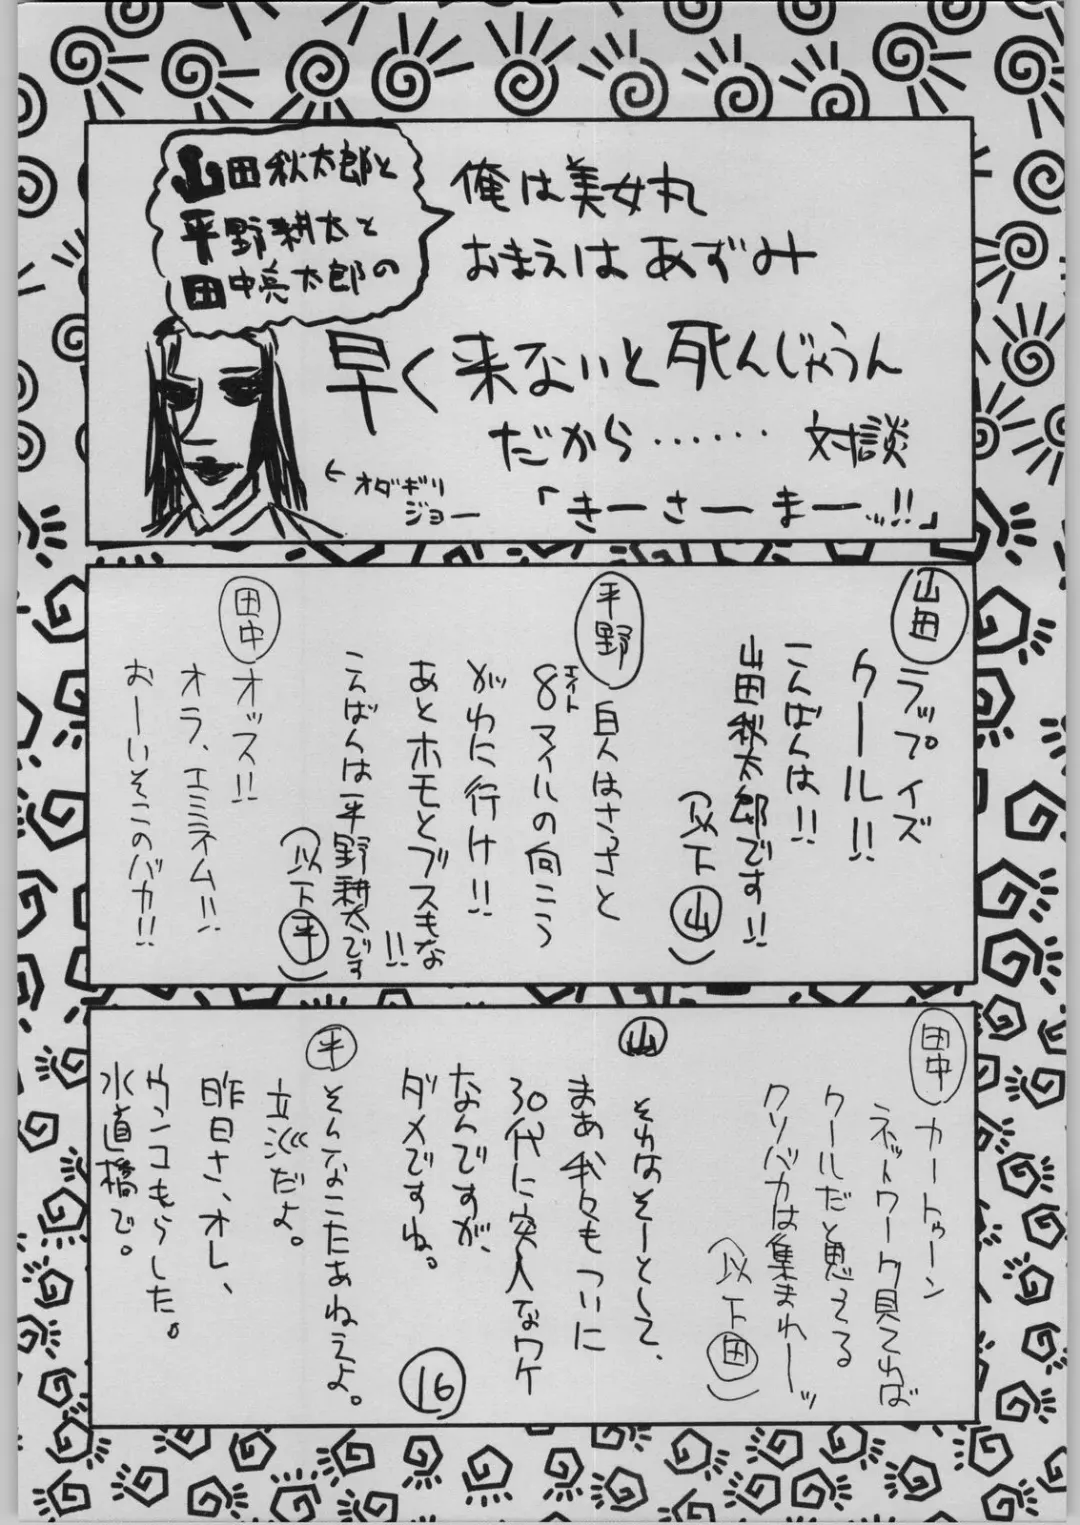 山田秋太郎と
平野耕太と
田中亮太郎の
俺は美女丸
おまえはあずみ
早く来ないと死んじゃうん
だから…… 対談
「きーさーまー…!!」
←オダギリ
ジョー
山田
ラップイズ
クール!!
こんばんは!!
山田秋太郎です!!
(以下山)
平野
白人はさっさと
8マイルの向こう
エイト
がわに行け!!
あとホモとブスもな!!
こんばんは平野耕太です
(以下平)
田中
オッス!!
オラ、エミネム!!
おーいそこのバカ!!
田中
カートゥーン
ネットワーク見てれば
クールだと思ってる
クソバカは集まれーッ
(以下田)
山
それはそーとして、
まあ我々もついに
30代に突入なワケ
なんですが、
ダメですね。
平
そんなこたあねえよ。
立派だよ。
昨日さ、オレ、
ウンコもらした。
水道橋で。
16